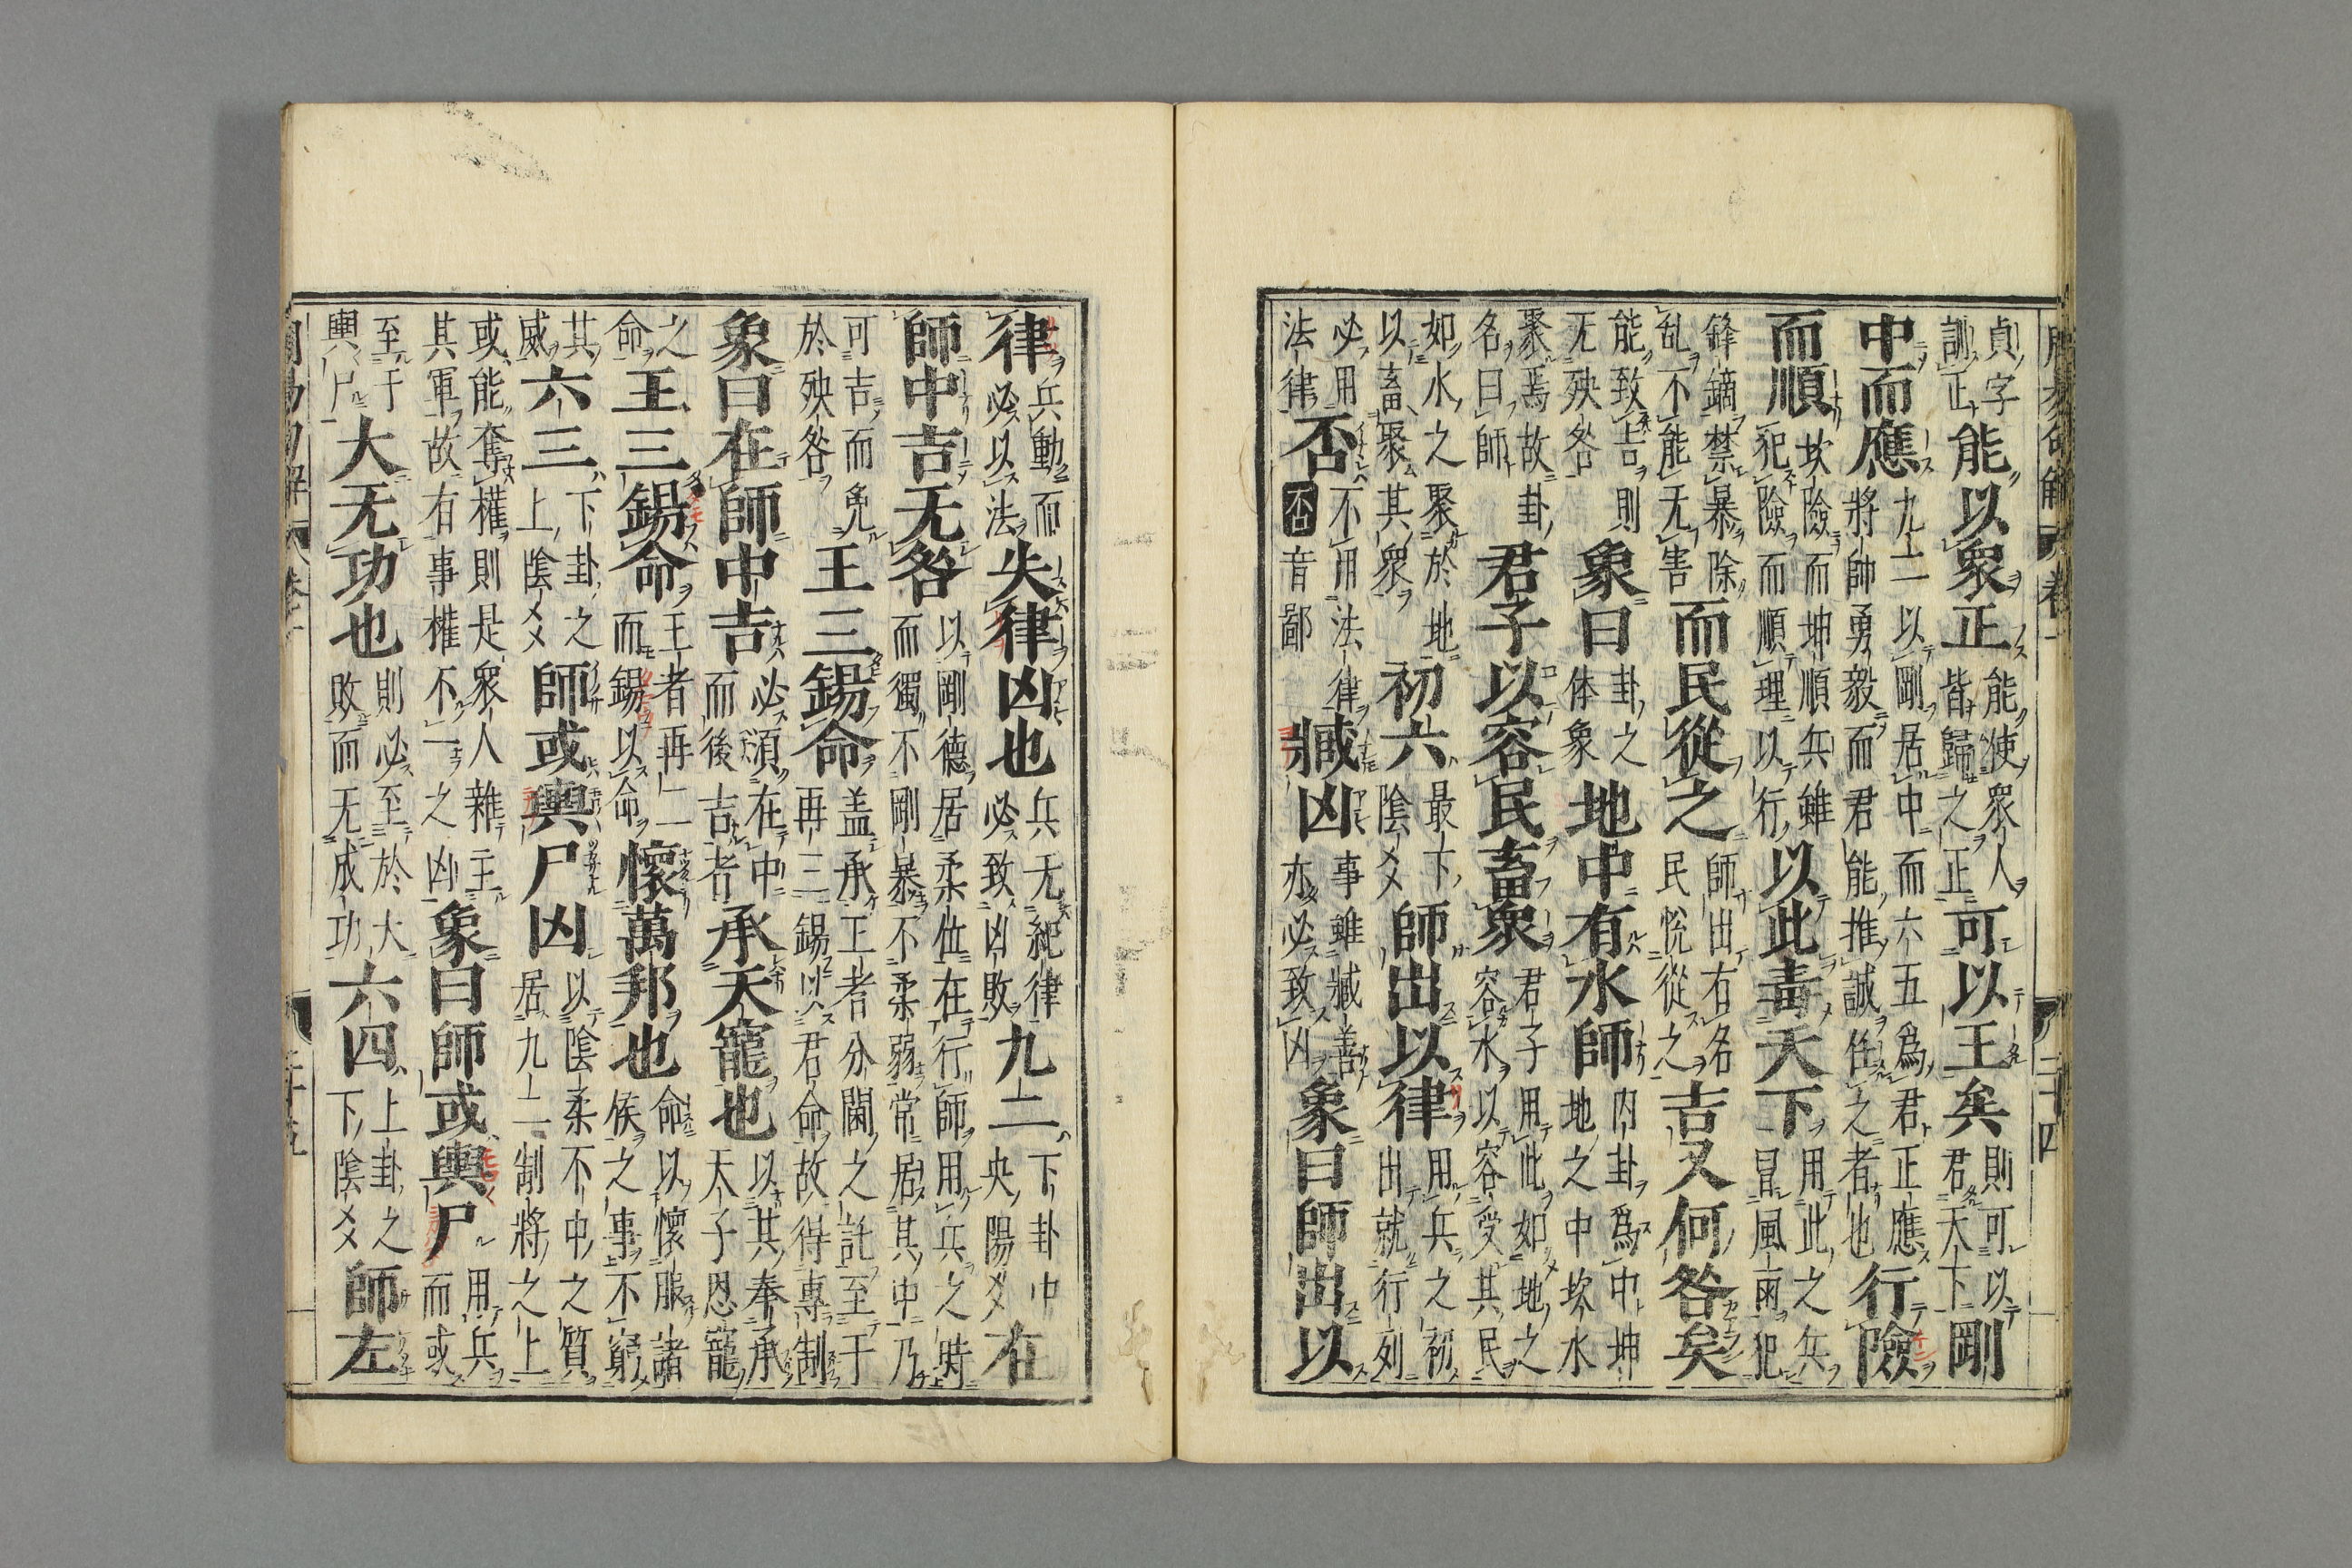 周易句解 卷一 二十四
貞字訓正能以衆正能使衆人皆歸之正可以王矣則可以君天下剛
中而應九二以剛居中而六五爲君正應將帥勇毅而君能推誠任之者也行險
而順坎險而坤順兵雖犯險而順理以行以此毒天下用此之兵冒風雨犯
鋒鏑禁暴除乱不能无害而民從之師出右名民悅從之吉又何咎矣
能致吉則无殃咎象曰卦之体象地中有水師内卦爲中坤地之中坎水
聚焉故卦名曰師君子以容民畜衆君子用此如地之容水以容受其民
如水之聚於地以畜聚其衆初六最下陰爻師出以律用兵之初出就行列
必用法律否不用法律否音鄙臧凶事雖臧善亦必致凶象曰師出以
律兵動而必以法失律凶也兵无紀律必致凶敗九二下卦中央陽爻在
師中吉无咎以剛德居柔位在行師用兵之時而獨不剛暴不柔弱常居其中乃
可吉而免於殃咎王三錫命盖承王者分閫之託至于再三錫以君命故得專制
象曰在師中吉必須在中而後吉者承天寵也以其奉承天子恩寵
之命王三錫命王者再二而錫以命懷萬邦也命以懷服諸侯之事不窮
其威六三下卦之上陰爻師或輿尸凶以陰柔不中之質居九二制將之上
或能奪權則是衆人雜主其軍故右事權不一之凶象曰師或輿尸用兵而或
至于輿尸大无功也則必至於大敗而无成功六四上卦之下陰爻師左
周易句解 卷一 二十五